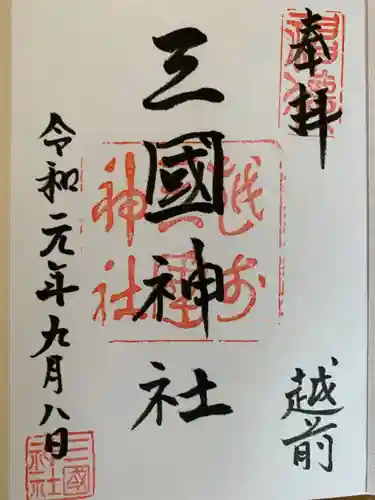 奉拝
越前
三國神社
令和元年九月八日
越前
三國
神社
三國
神社